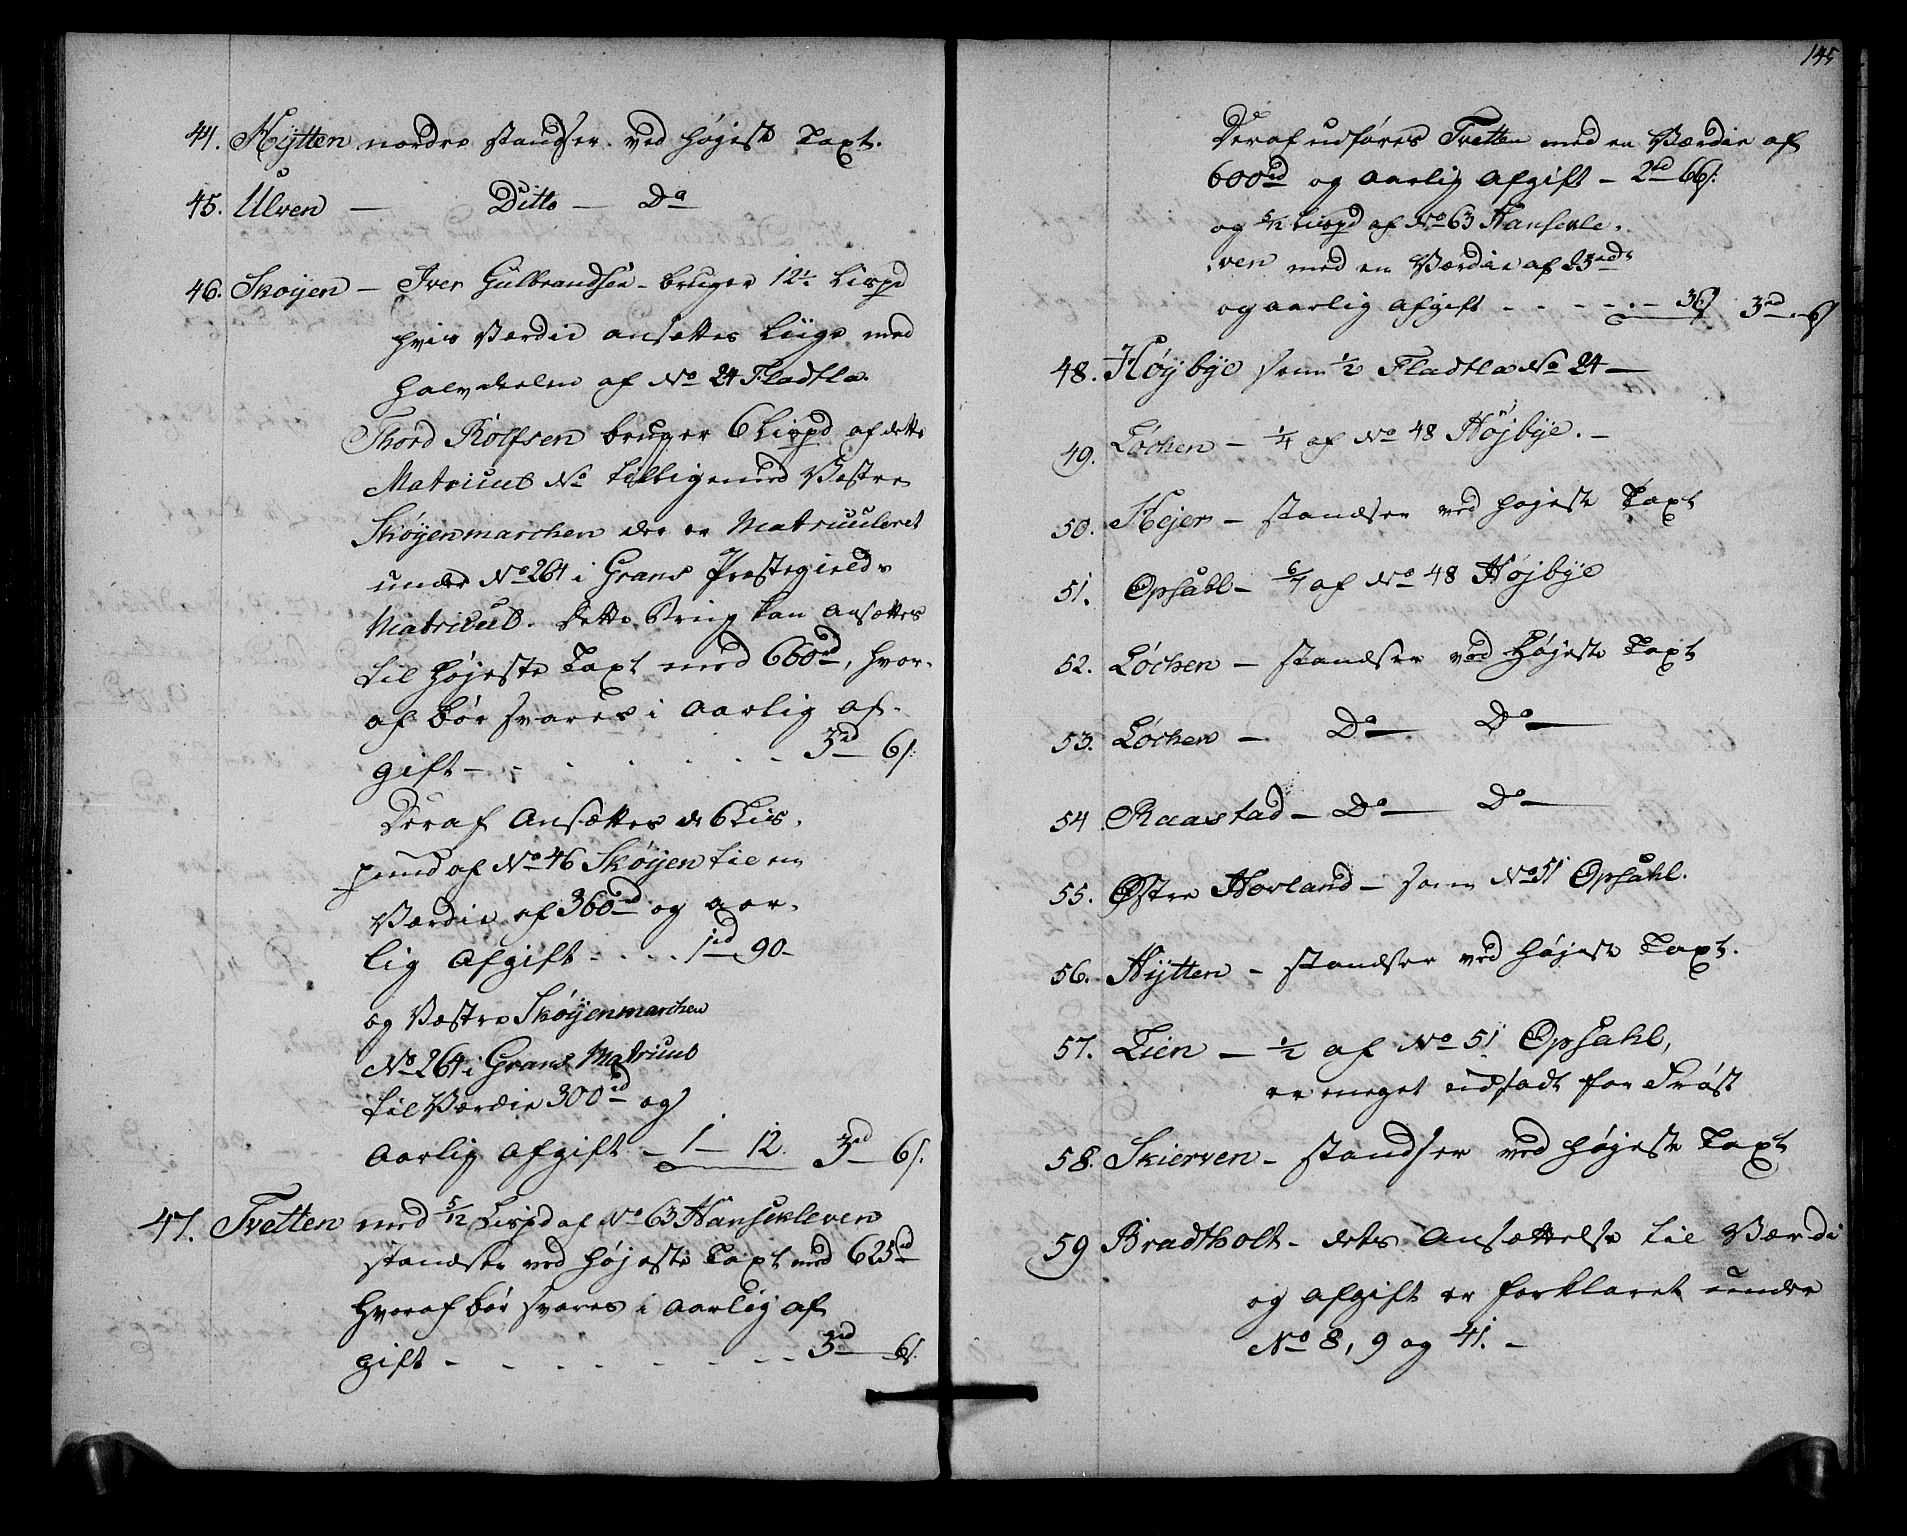 44. Hÿtten nordre standser ved højeste Taxt.
45. Ulven — Ditto — Do
46. Skøÿen — Iver Gulbrandsen - bruger 12½ Lispd
hvis Værdie ansættes liige med
halvdeelen af No 24 Fladtla.
Thord Rolfsen bruger 6 Lispd af dette
Matricul No tilligemed Vestre
Skøÿenmarchen der er Matriculeret
under No 264 i Grans Præstegields
Matricul. Dette Brug kan ansættes
til højeste Taxt med 660 rd, hvor-
af bør svares i aarlig af-
gift - - - - - - - 3 rd 6 s:
Deraf Ansættes de 6 Lis-
pund af No 46 Skøÿen til en
Værdie af 360 rd og aar-
lig Afgift - - - - 1 rd 90 -
og Vestre Skøÿenmarchen
No 264 i Grans Matricul
til Værdie 300 rd og
aarlig Afgift - 1 — 12. 3 rd 6 s.
47. Tvetten med 5/12 Lispd af No 63 Hansekleven
standser ved højeste Taxt med 625 rd
hvoraf bør svares i aarlig af
gift - - - - - - - - 3 rd 6 s.
145
Deraf udføres Tvetten med en Værdie af
600 rd og aarlig Afgift - 2 rd 66 s:
og 5/12 Lispd af No 63 Hansekle-
ven med en Værdie af 25 rd
og aarlig Afgift - - - - - - 36 s 3 rd 6 s
48. Høÿbÿe som ½ Fladtla No 24 —
49. Løchen — ¼ af No 48 Højbÿe. -
50. Kejer — standser ved højeste Taxt
51. Opsahl - 6/4 af No 48 Højbÿe
52. Løchen — standser ved Højeste Taxt
53. Løchen — Do — Do —
54. Raastad — Do — Do —
55. Østre Hovland — som No 51 Opsahl.
56. Hÿtten — standser ved højeste Taxt.
57. Lien — ½ af No 51 Opsahl,
er meget udsadt for Frøst
58. Skierven - standser ved højeste Taxt
59 Bradtholt - dets Ansættelse til Værdi
og Afgift er forklaret under
No 8, 9 og 41. -